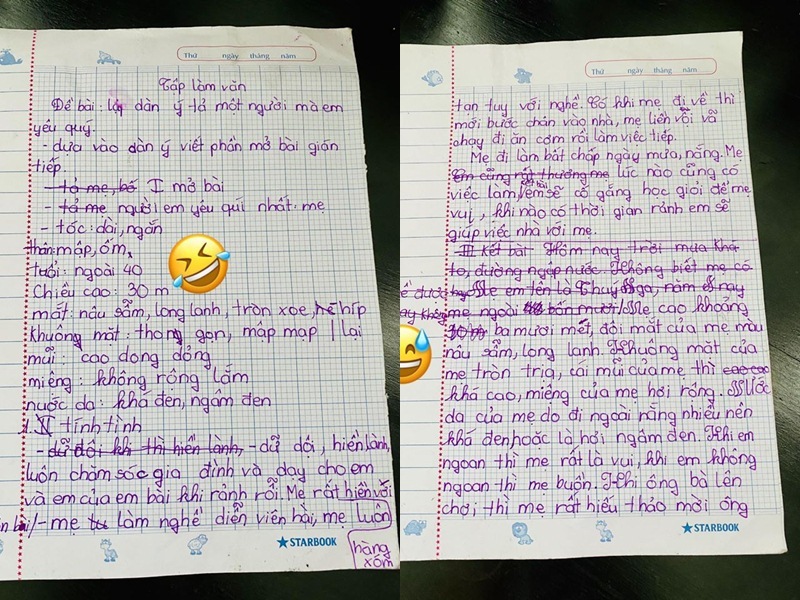 Thứ ngày tháng năm
Tập làm văn
Đề bài: lập dàn ý tả một người mà em
yêu quý.
- dựa vào dàn ý viết phần mở bài gián
tiếp.
- tả mẹ, bố I mở bài
- tả mẹ người em yêu quí nhất: mẹ
- tóc: dài, ngắn
thân: mập, ốm
tuổi: ngoài 40
Chiều cao: 30 m
mắt: nâu sẫm, long lanh, tròn xoe, híp
khuông mặt: thong gọn, mập mạp
mũi: cao dong dỏng
miệng: không rộng lắm
nước da: khá đen, ngâm đen
II tính tình
- dữ dôi khi thì hiền lành, - dữ dôi, hiền lành,
luôn chăm sóc gia đình và dạy cho em
và em của em bài khi rảnh rỗi. Mẹ rất hiền với
- mẹ làm nghề diễn viên hài, mẹ luôn
hàng
xóm
STARBOOK
Thứ ngày tháng năm
tận tuy với nghề. Có khi mẹ đi về thì
mới bước chân vào nhà, mẹ liền vội vã
chạy đi ăn cơm rồi làm việc tiếp.
Mẹ đi làm bất chấp ngày mưa, nắng. Mẹ
em cũng rất thương mẹ lúc nào cũng có
việc làm, em sẽ cố gắng học giỏi để mẹ
vui, khi nào có thời gian rảnh em sẽ
giúp việc nhà với mẹ.
III Kết bài Hôm nay trời mưa khá
to, đường ngập nước. Không biết mẹ có
Mẹ em tên là Thuý Nga, năm nay
mẹ ngoài bốn mươi. Mẹ cao khoảng
30 m ba mươi mét, đôi mắt của mẹ màu
nâu sẫm, long lanh. Khuông mặt của
mẹ tròn trịa, cái mũi của mẹ thì cao cao
khá cao, miệng của mẹ hơi rộng. Nước
da của mẹ do đi ngoài nắng nhiều nên
khá đen hoặc là hơi ngâm đen. Khi em
ngoan thì mẹ rất là vui, khi em không
ngoan thì mẹ buồn. Khi ông bà lên
chơi thì mẹ rất hiếu thảo mời ông
STARBOOK